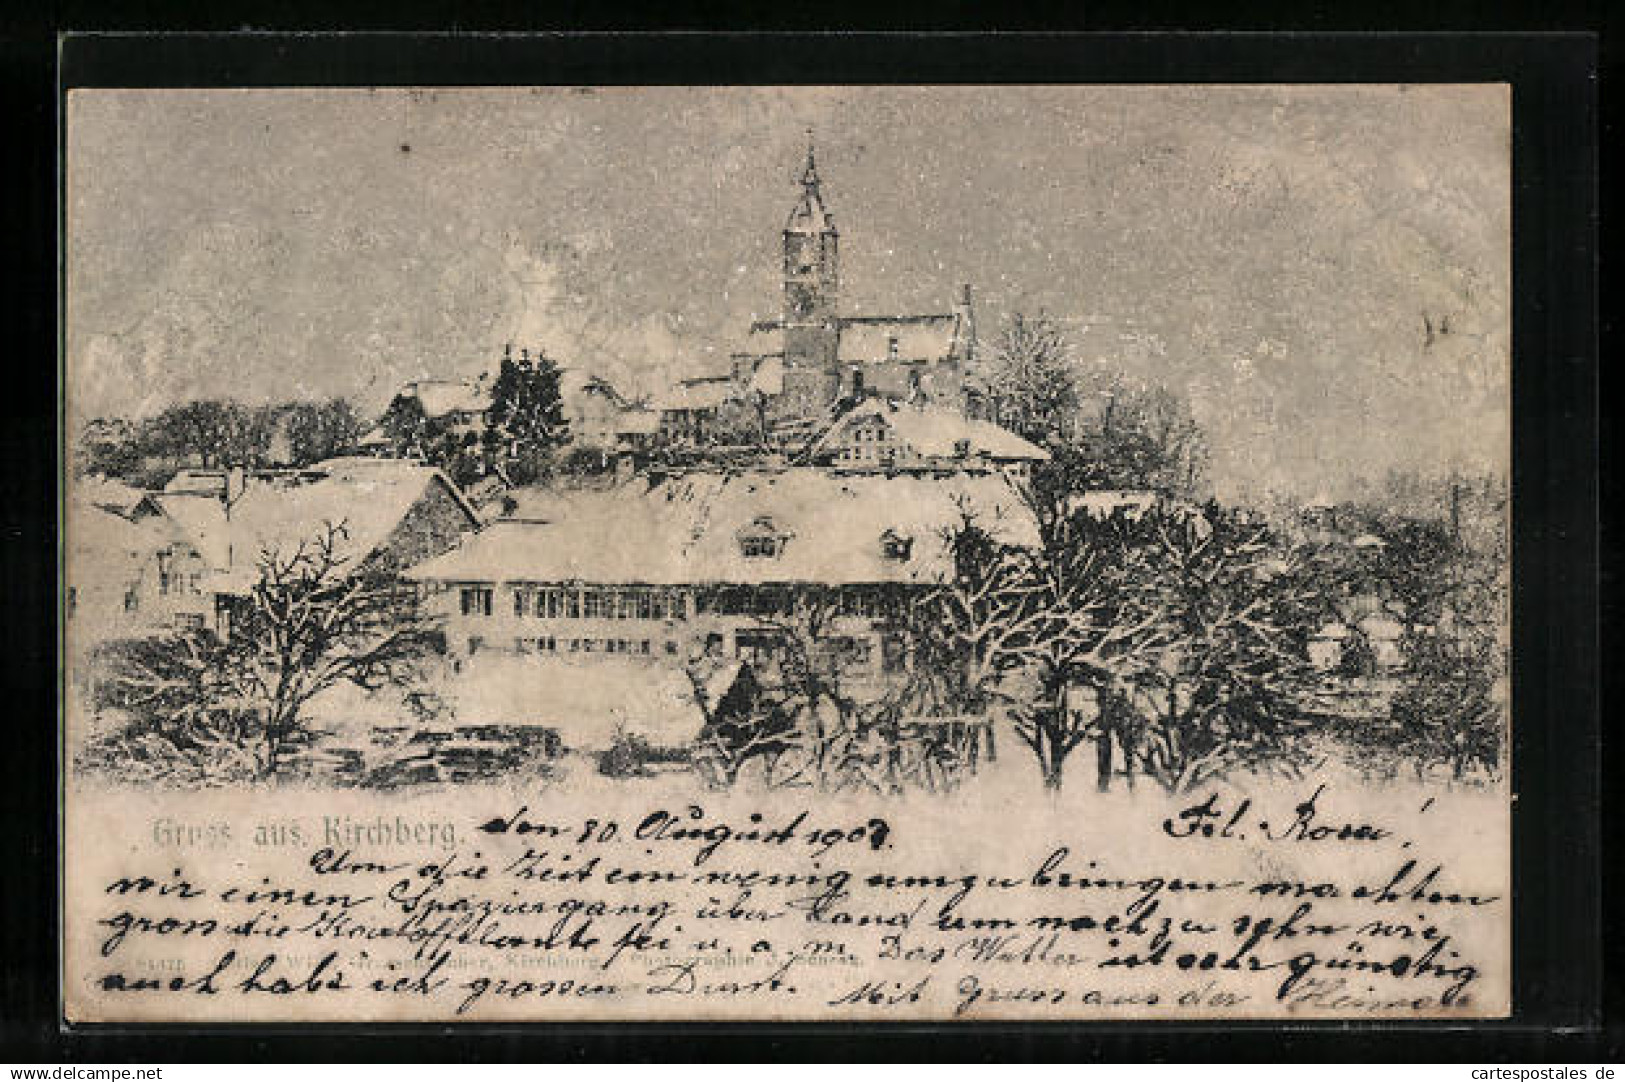 Gruss aus Kirchberg.
den 30. August 1903.
Frl. Rosa!
Um die Zeit ein wenig umzubringen machten
wir einen Spaziergang über Land um nachzusehn wie
gross die Kartoffel sei u. a. m. Das Wetter ist sehr günstig
Kirchberg. Photographie J.
auch habe ich grossen Durst. Mit Gruss aus der Heimat
www.cartespostales.de
cartespostales de